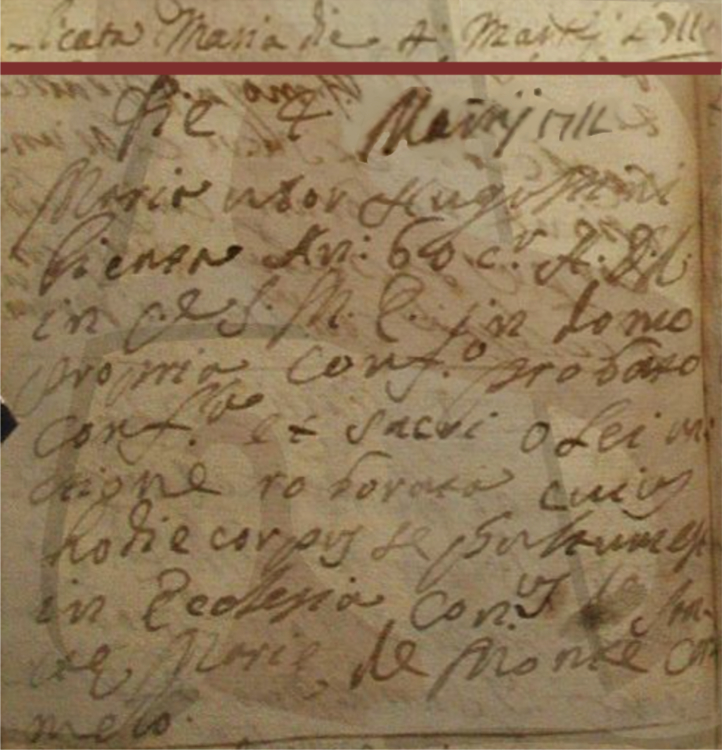 Maria die 4 Martij 1711
Die 4 Martij 1711
Maria uxor Hugo
An: 60 c.r A. D. S.
in C. S. M. E. in domo
propria Conf.o probato
conf.bo et sacri olei un
ctione roborata cuius
hodie corpus sepultum est
in Ecclesia Con.us de San
cte Marie de Monte Car
melo.